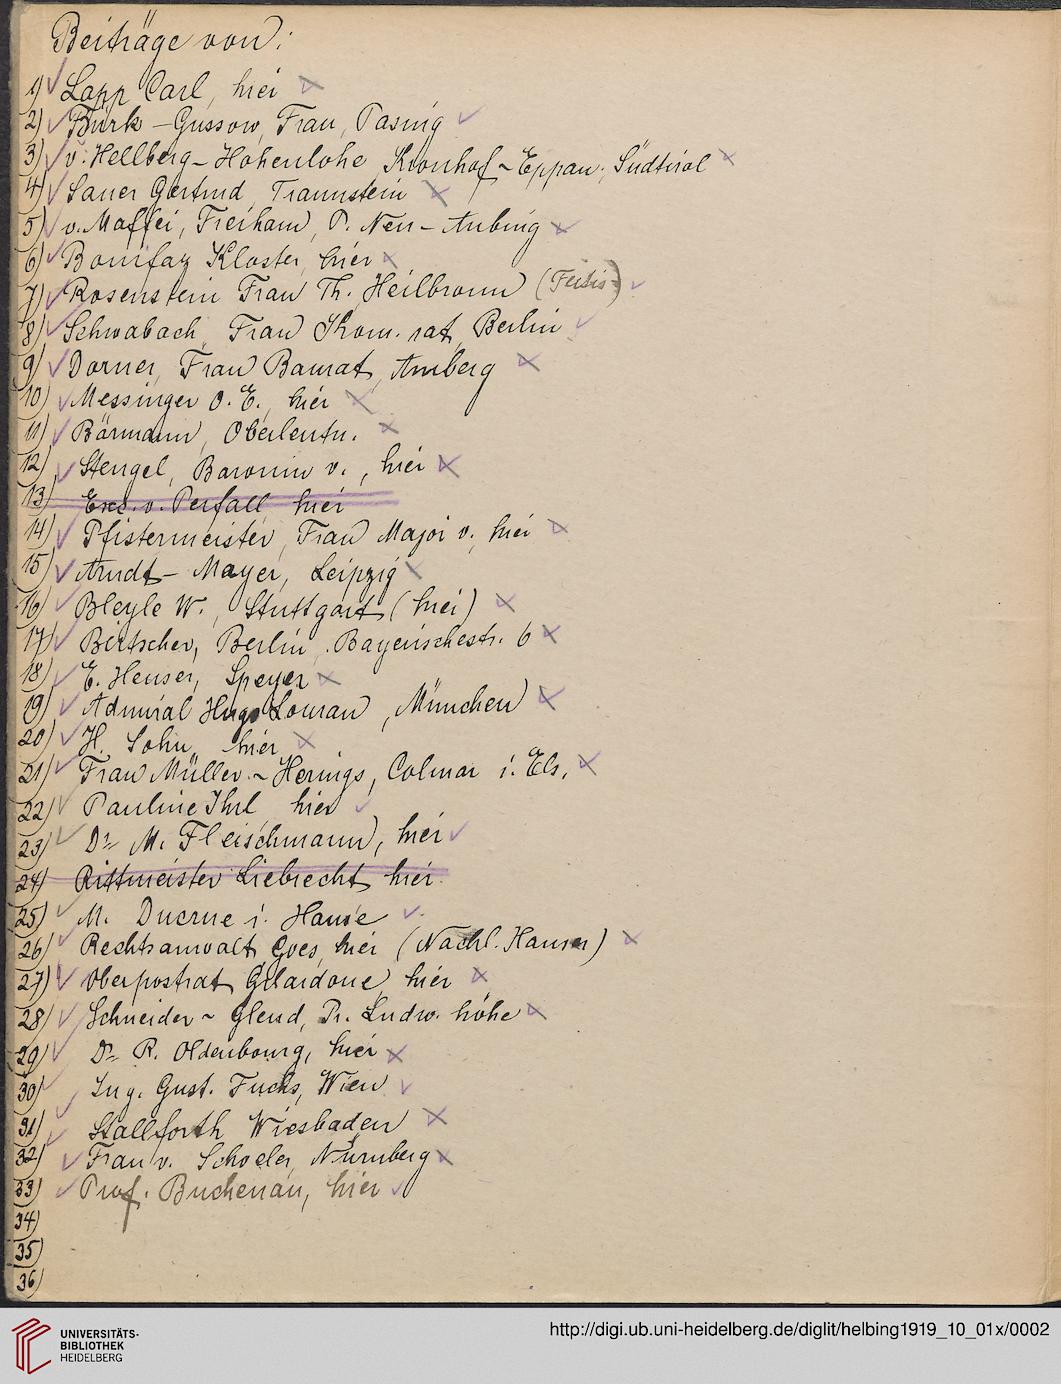 Beiträge von:
1) Lapp Carl, hier
2) Bürk-Gussow, Frau, Pasing
3) v. Hellberg-Hohenlohe Kronhof-Eppan, Südtirol
4) Sauer Gertrud, Traunstein
5) v. Maffei, Freiham, P. Neu-Aubing
6) Bonifaz Kloster, hier
7) Rosenstein Frau Th. Heilbronn
8) Schwabach, Frau Kom.rat, Berlin
9) Dorner, Frau Baurat, Amberg
10) Messinger O. E., hier
11) Bärmann, Oberleutn.
12) Stengel, Baronin v., hier
13) Exc. v. Perfall hier
14) Pfistermeister, Frau Major v., hier
15) Arndt-Mayer, Leipzig
16) Bleyle W., Stuttgart (hier)
17) Birtscher, Berlin, Bayerischestr. 6
18) E. Heuser, Speyer
19) Admiral Hugo Louran, München
20) H. Sohn, hier
21) Frau Müller-Herings, Colmar i. Els.
22) Pauline Ihrl hier
23) Dr. M. Fleischmann, hier
24) Rittmeister Liebrecht, hier
25) M. Ducrue i. Hause
26) Rechtsanwalt Goes, hier (Nachl. Hauser)
27) Oberpostrat Gilardone, hier
28) Schneider-Glend, Pr. Ludw. höhe
29) Dr. R. Oldenbourg, hier
30) Ing. Gust. Fuchs, Wien
31) Stallforth Wiesbaden
32) Frau v. Schoeler, Nürnberg
33) Prof. Buchenau, hier
34)
35)
36)
UNIVERSITÄTS-
BIBLIOTHEK
HEIDELBERG
http://digi.ub.uni-heidelberg.de/diglit/helbing1919_10_01x/0002